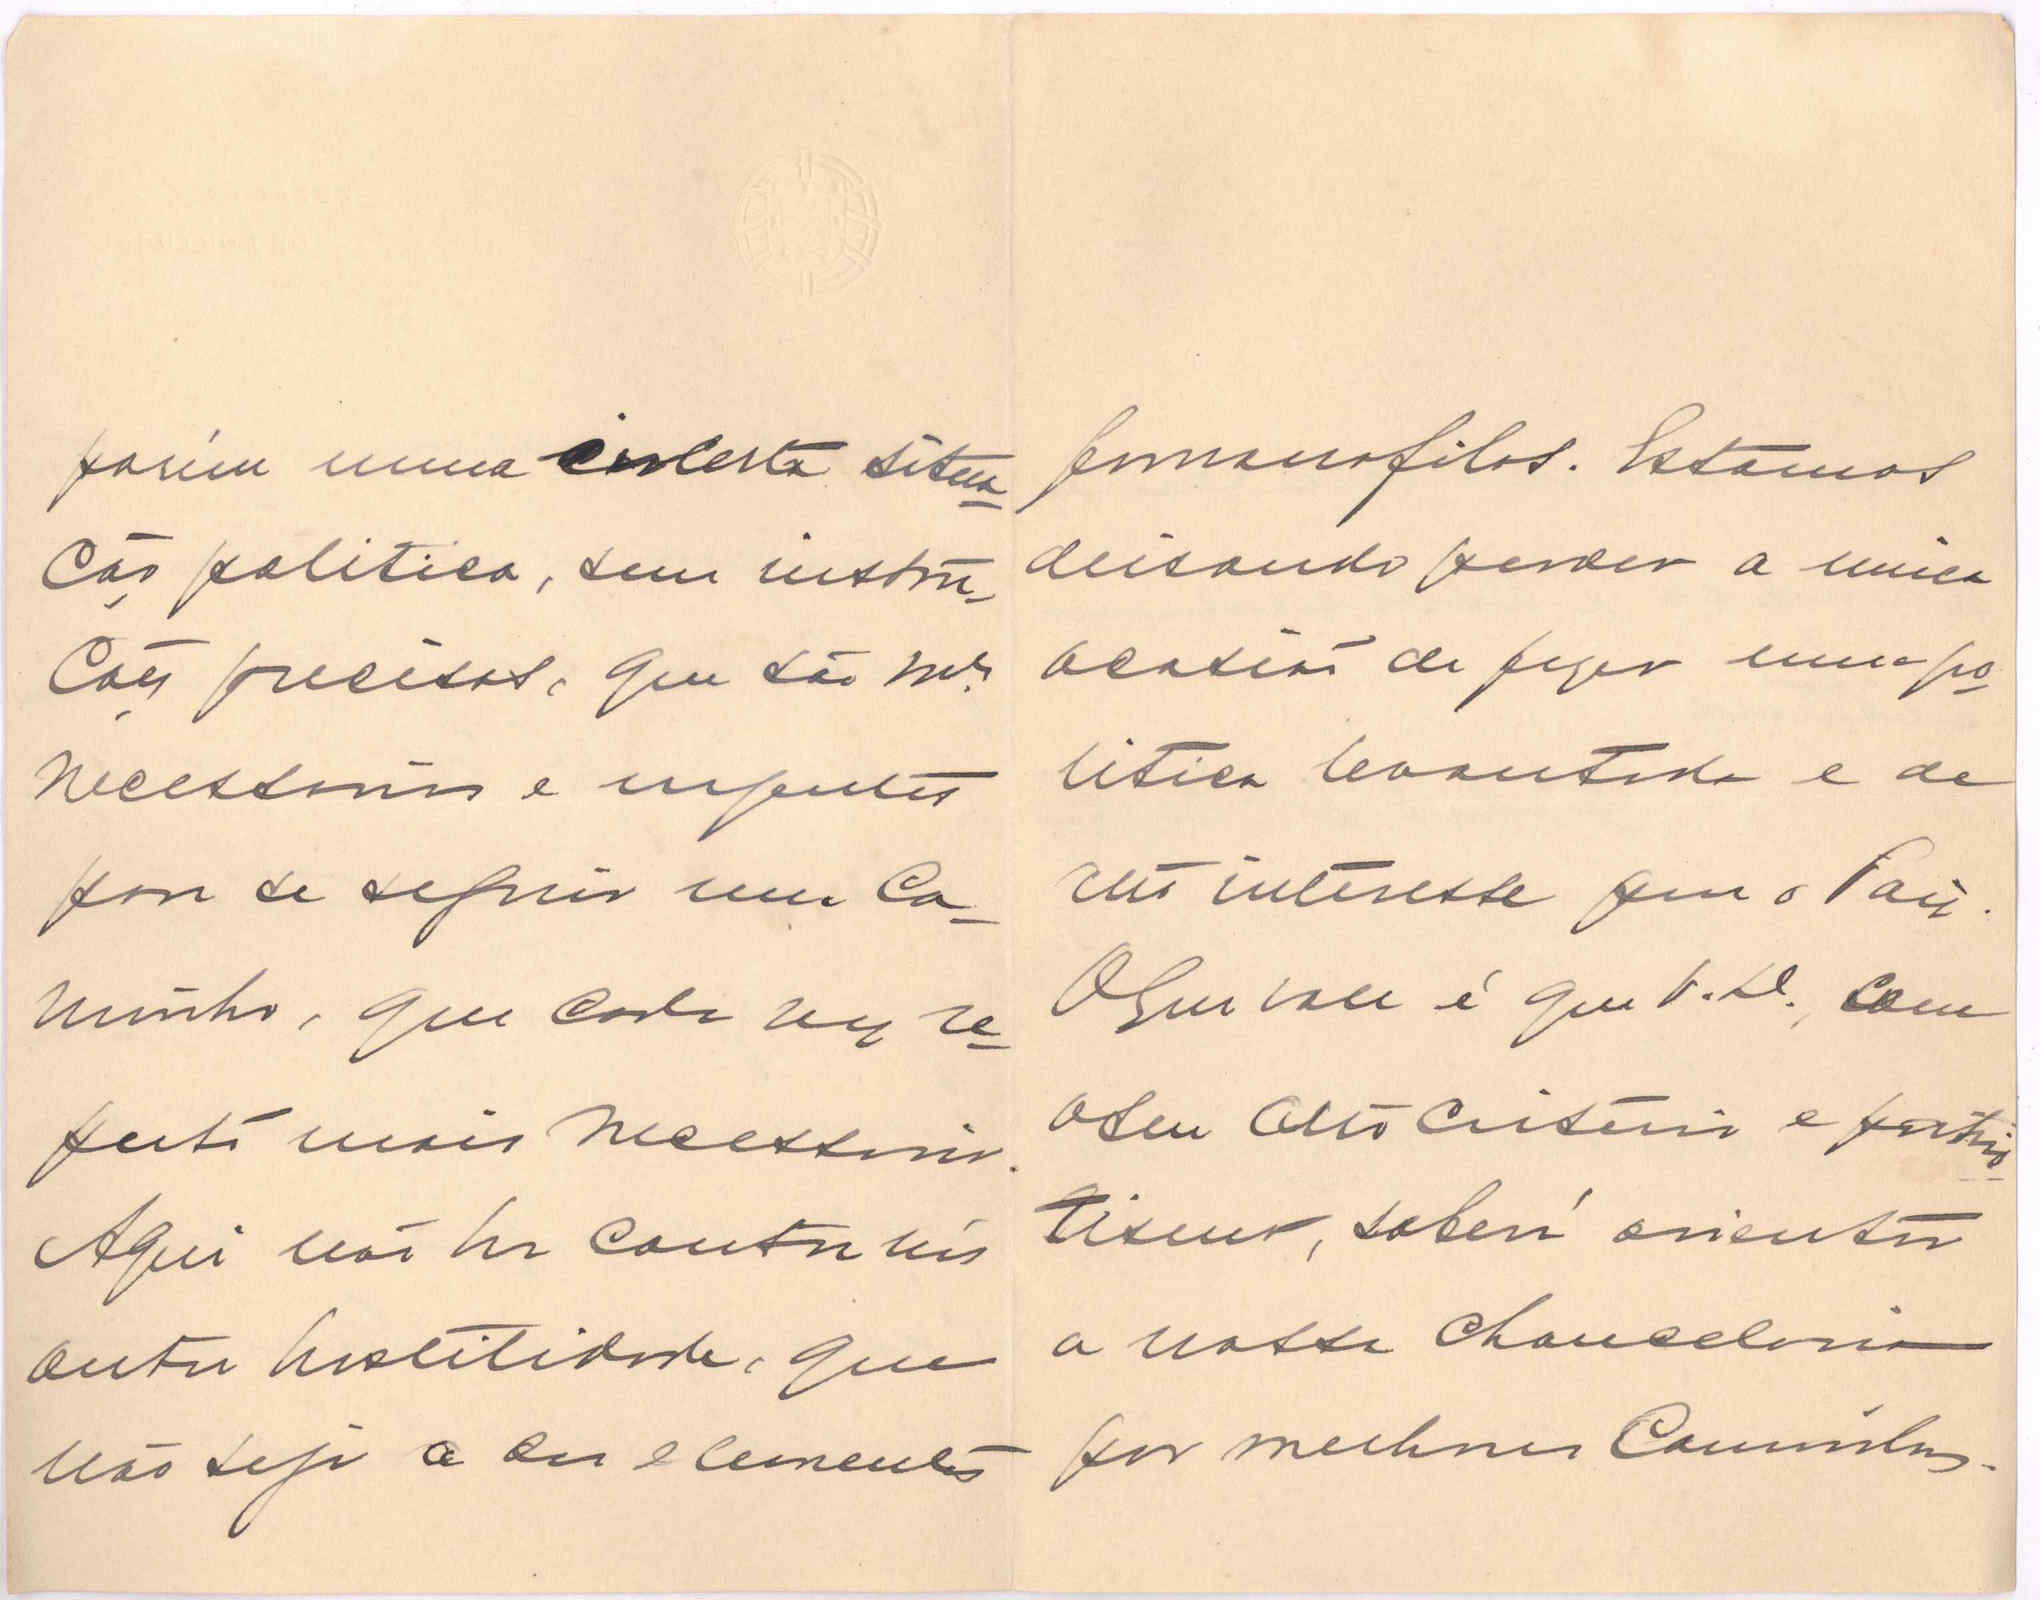 porém numa incerta situa-
ção politica, sem instru-
ções precisas, que são m.to
necessarias e urgentes
para se seguir um ca-
minho, que cada vez re-
puto mais necessario.
Aqui não ha contra nós
outra hostilidade, que
não seja a dos elementos
germanofilos. Estamos
deixando perder a unica
ocasião de fazer uma po-
litica levantada e de
alto interesse para o Paiz.
O que vale é que V. Ex., com
o seu alto criterio e patrio-
tismo, saberá orientar
a nossa chancelaria
por melhores caminhos.